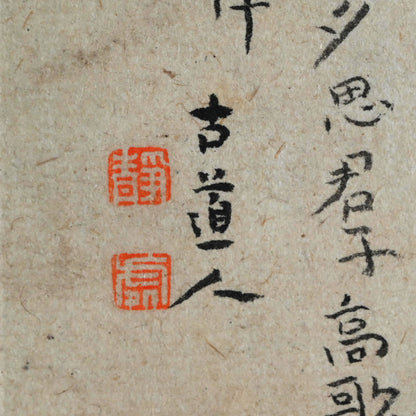 夕思君子高歌
古道人
靜